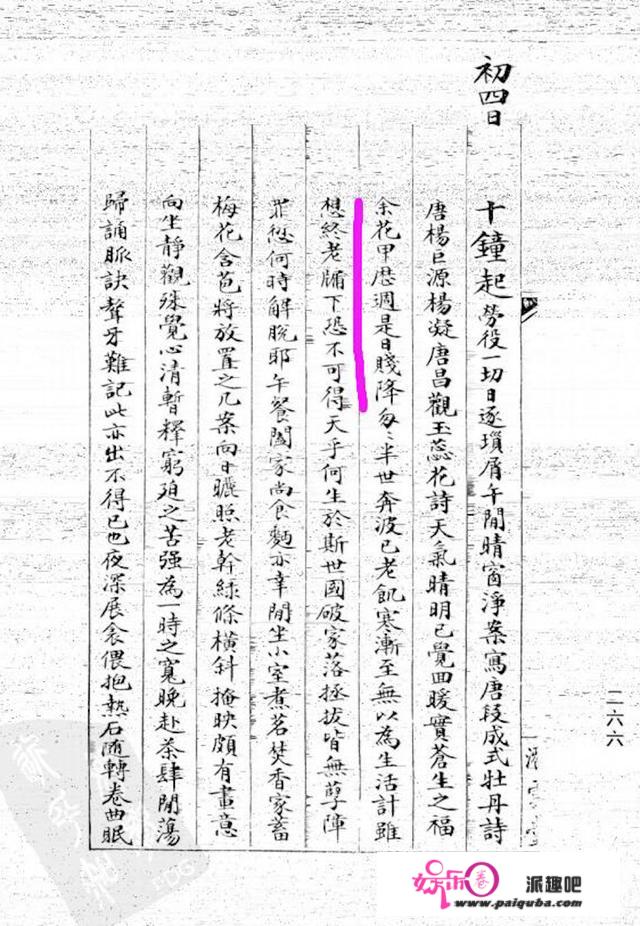 初四日
十鐘起勞役一切日逐瑣屑午閒晴窗淨案寫唐段成式牡丹詩
唐楊巨源楊凝唐昌觀玉蕊花詩天氣晴明已覺回暖實蒼生之福
余花甲歷週是日賤降匆〻半世奔波已老飢寒漸至無以為生活計雖
想終老牖下恐不可得天乎何生於斯世國破家落拯拔皆無孽障
罪愆何時解脫耶午餐闔家尚食麵亦幸閒坐小室煮茗焚香家蓄
梅花含苞將放置之几案向日曬照老幹綠條橫斜掩映頗有畫意
向坐靜觀殊覺心清暫釋窮迫之苦強為一時之寬晚赴茶肆閒蕩
歸誦脈訣聱牙難記此亦出不得已也夜深展衾偎抱熱石隨轉卷曲眠
二六六
娱乐圈
派趣吧
www.paiquba.com